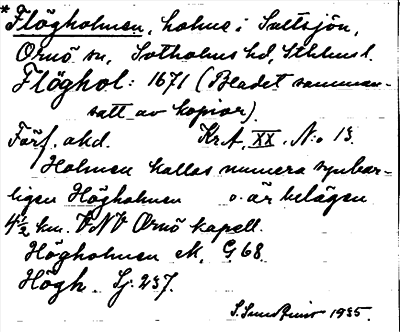 * Flögholmen, holme i Saltsjön,
Ornö sn, Sotholms hd, Sthlms l.
Flöghol: 1671 (Bladet samman-
satt av kopior).
Förf. akd. Kr.A. XX. N:o 13.
Holmen kallas numera synbar-
ligen Högholmen o. är belägen
4½ km. VNV Ornö kapell.
Högholmen eK. G. 68.
Högh. Sj. 237.
1935.